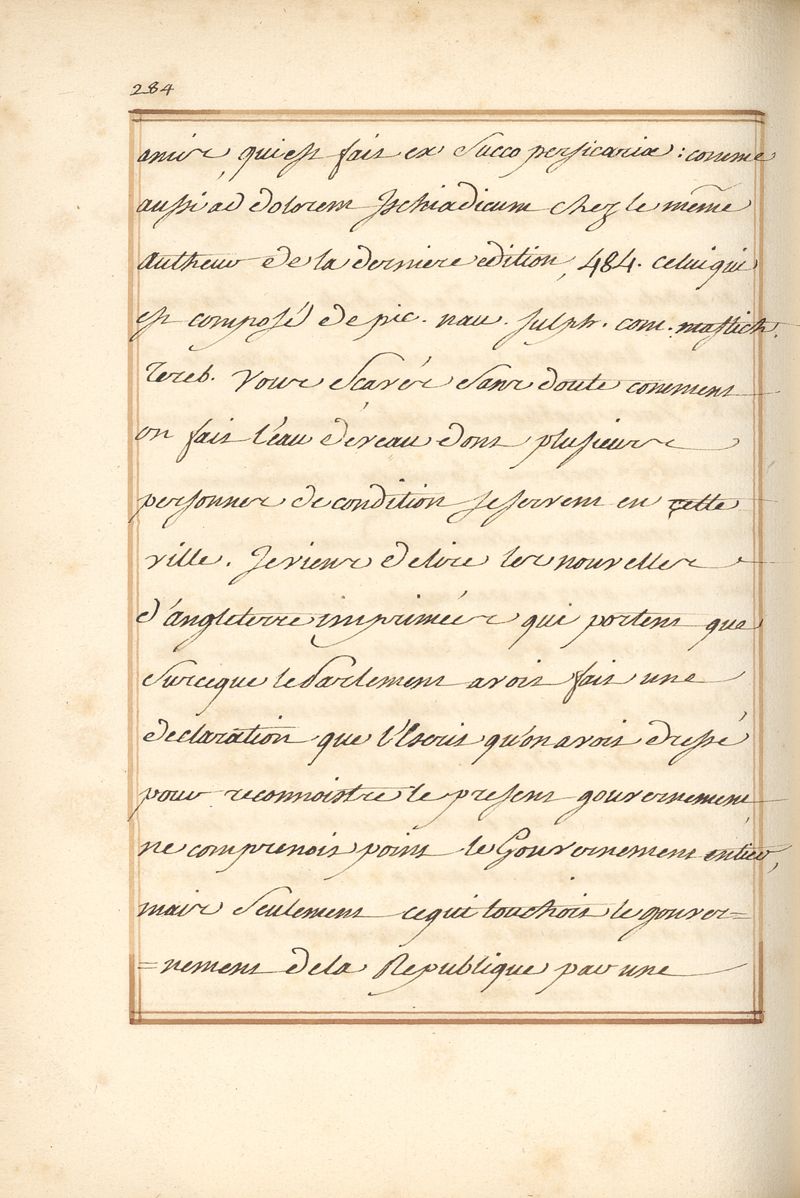 284
amis, qui est fait ex Succo persicariæ : comme
aussi ad dolorem Ischiadicum chez le même
autheur de la derniere edition, 484. celui qui
est composé de pic. nav. sulph. com. mastich.
Tereb. Vous Scavés Sans doute comment
on fait l'eau d'éreau dont plusieurs
personnes de condition se servent en cette
ville. Je viens de lire les nouvelles
d'angleterre imprimées qui portent que
Surceque le Parlement avoit fait une
declaration que l'Escrit qu'on avoit dressé
pour reconnoistre le present gouvernement
ne comprenoit point le Gouvernement entier,
mais Seulement ce qui touchoit le gouver=
=nement de la Republique par une